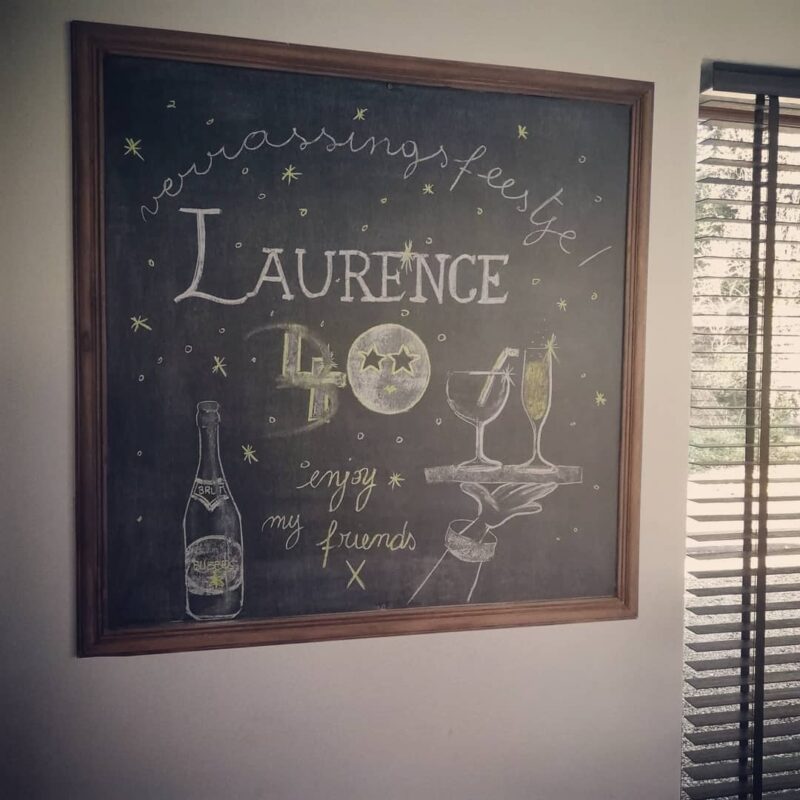 verrassingsfeestje!
LAURENCE
40
enjoy
my friends
X
BRUT